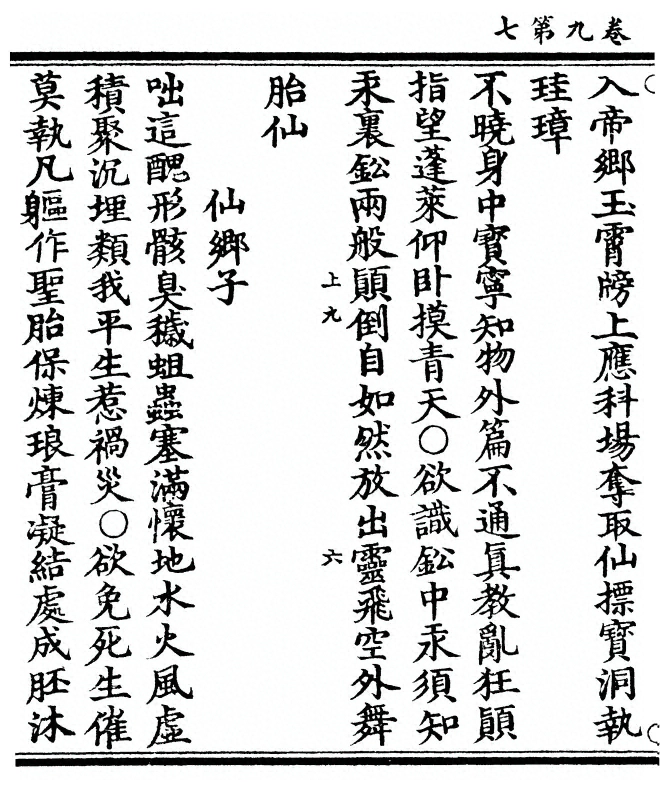 卷九第七
入帝鄉玉霄牓上應科場奪取仙摽寶洞執
珪璋
不曉身中寶寧知物外篇不通真教亂狂顛
指望蓬萊仰卧摸青天〇欲識鈆中汞須知
汞裏鈆兩般顛倒自如然放出靈飛空外舞
上九
六
胎仙
仙鄉子
咄這醜形骸臭穢蛆蟲塞滿懷地水火風虛
積聚沉埋類我平生惹禍災〇欲免死生催
莫執凡軀作聖胎保煉琅膏凝結處成胚沐